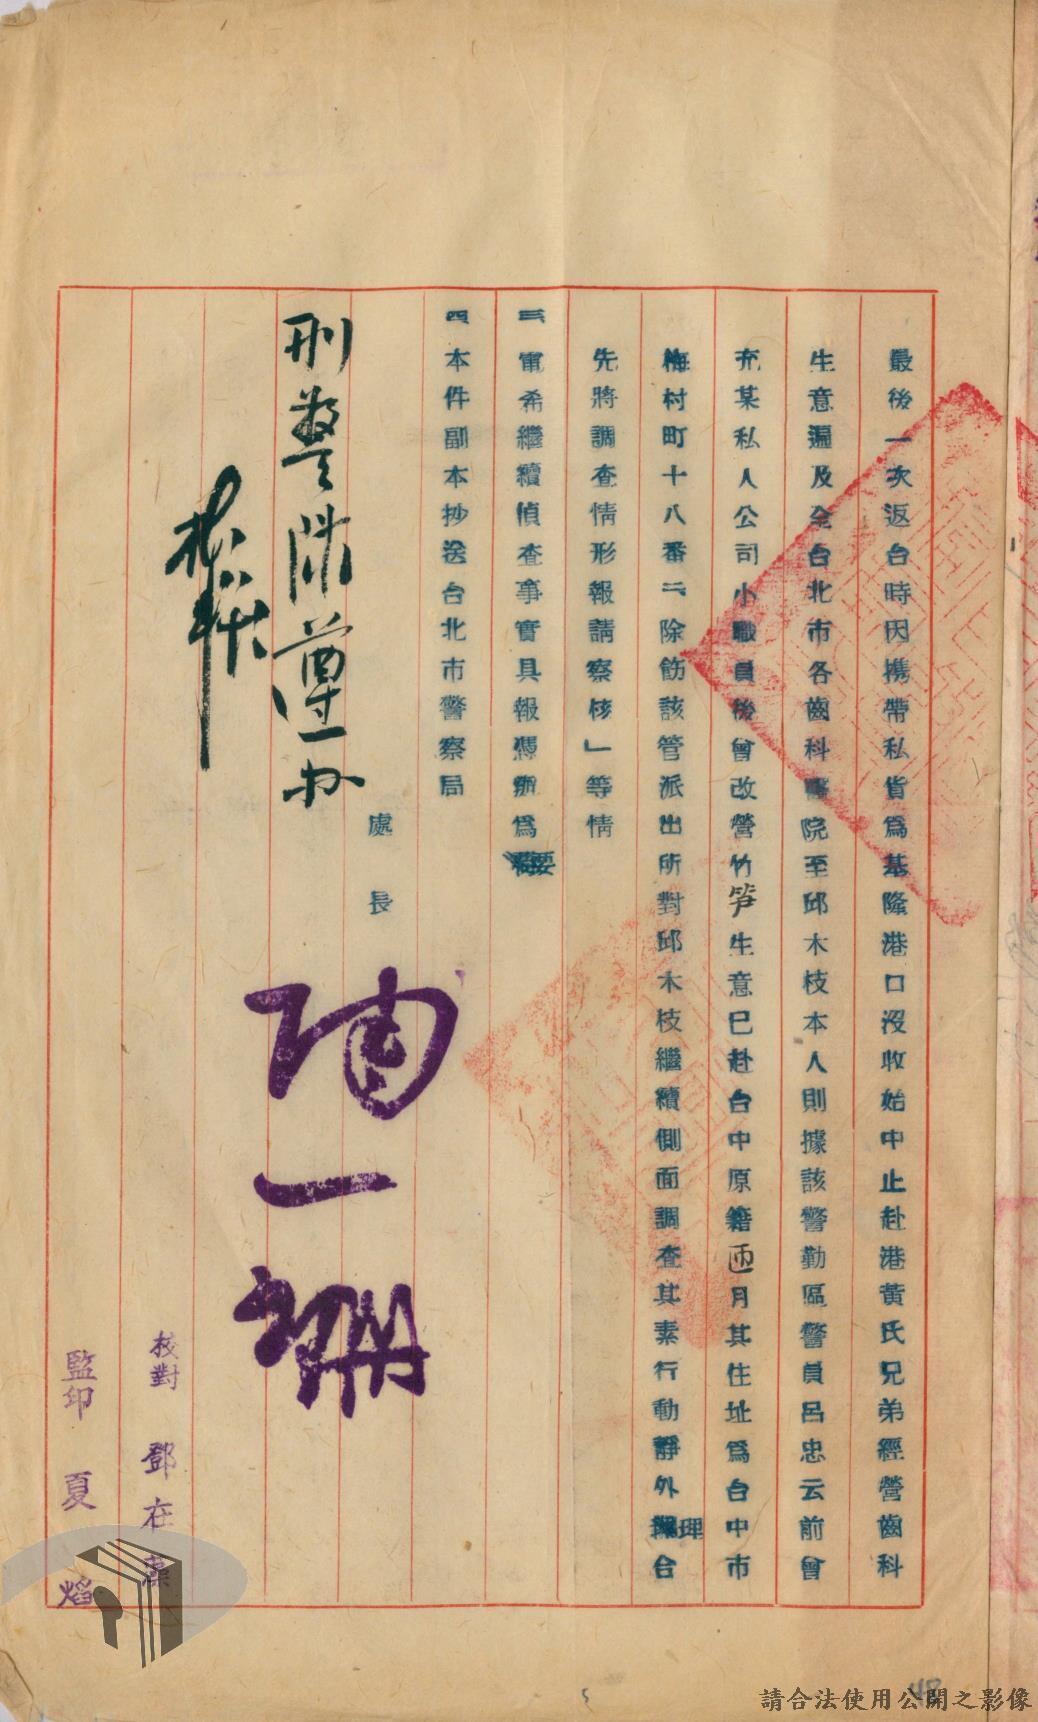 最後一次返台時因携帶私貨為基隆港口沒收始中止赴港黃氏兄弟經營齒科
生意遍及全台北市各齒科醫院至邱木枝本人則據該警勤區警員呂忠云前曾
充某私人公司小職員後曾改營竹笋生意已赴台中原籍匝月其住址為台中市
梅村町十八番二除飭該管派出所對邱木枝繼續側面調查其素行動靜外理合
先將調查情形報請察核」等情
三電希繼續偵查事實具報憑辦為要
四本件副本抄送台北市警察局
處長
陶一珊
刑警隊遵办
校對 鄧在
監印 夏焰
請合法使用公開之影像